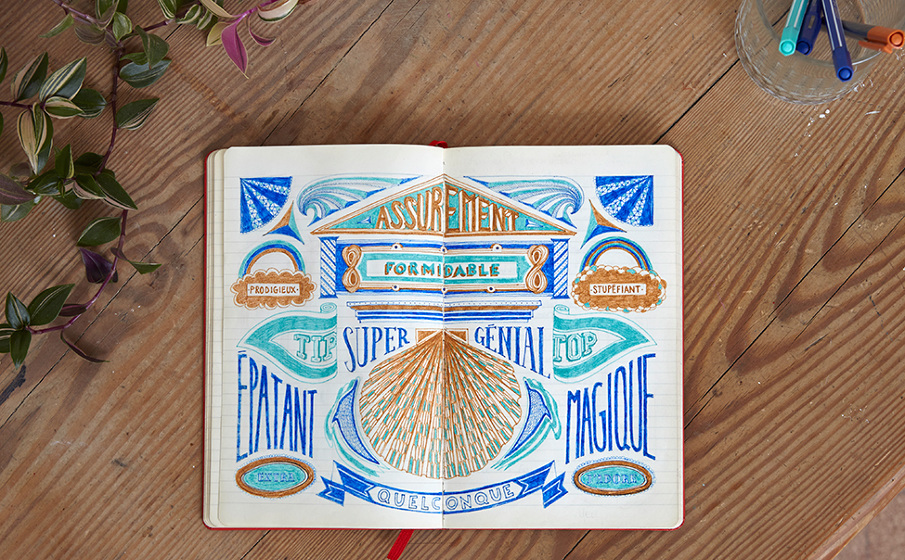 ASSUREMENT
FORMIDABLE
PRODIGIEUX
STUPÉFIANT
TIP TOP
SUPER GÉNIAL
ÉPATANT
MAGIQUE
QUELCONQUE